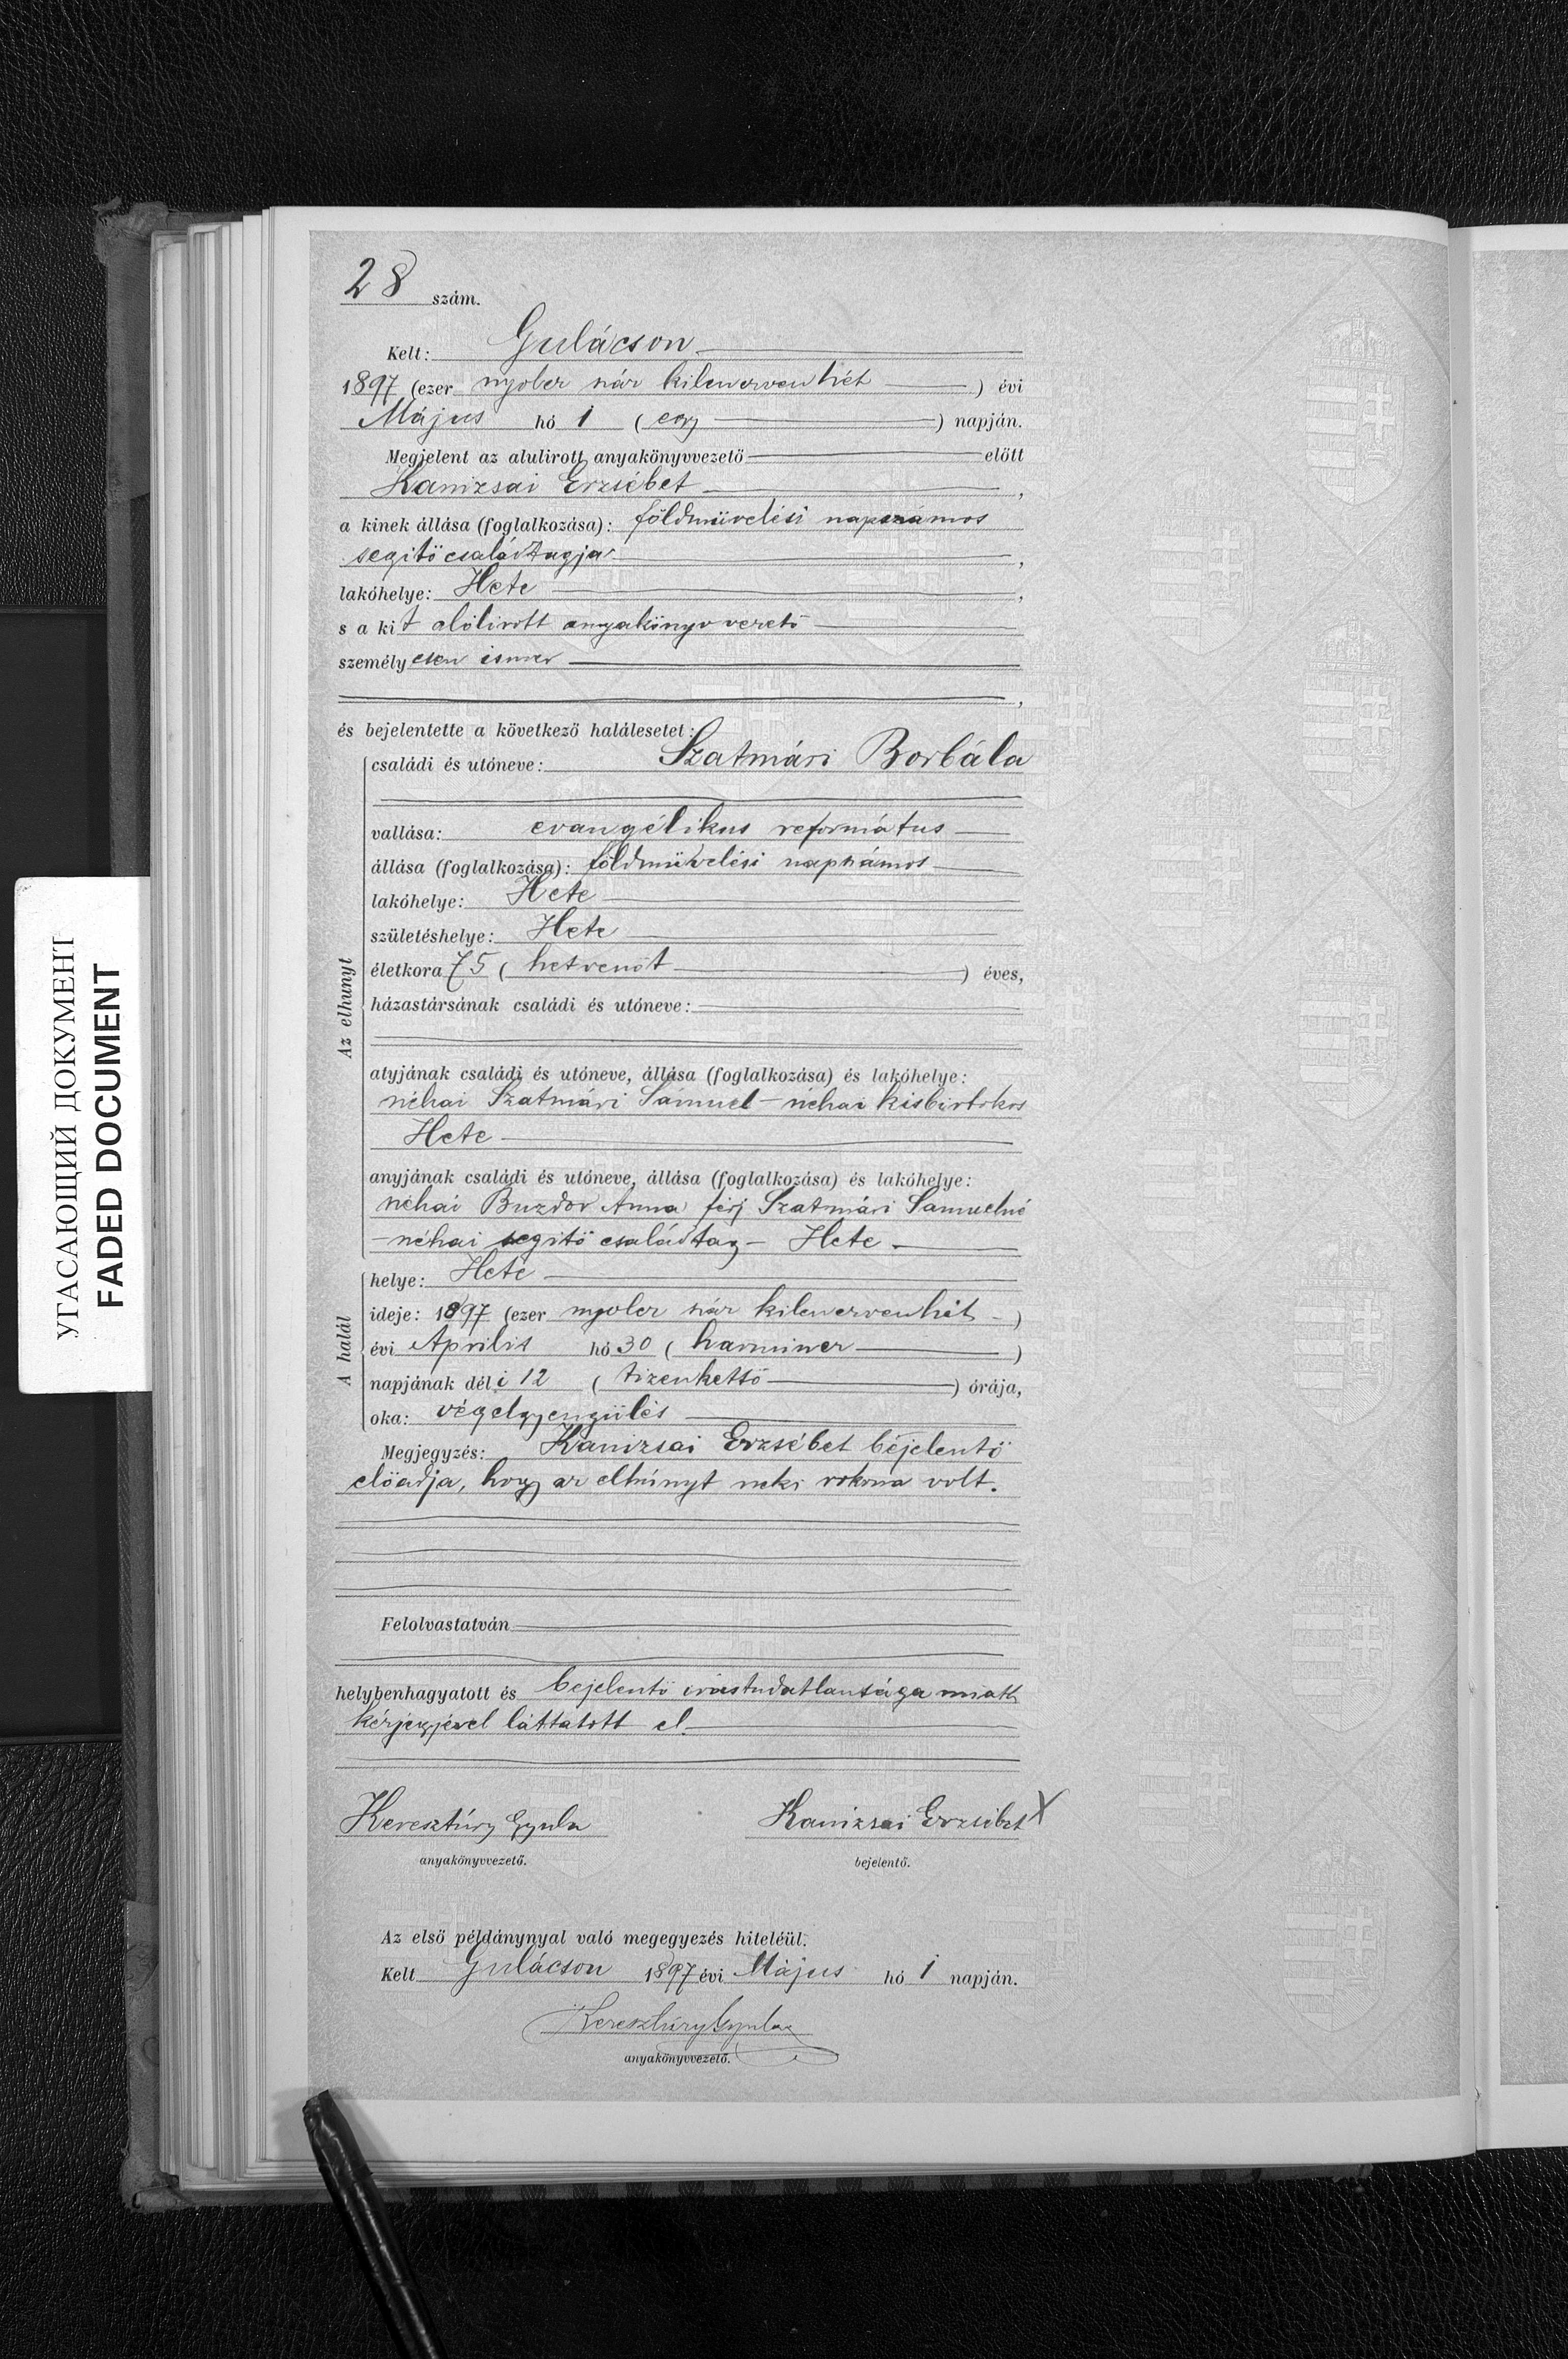 28 szám.
Kelt: Gulácson
1897 (ezer nyolcz száz kilenczvenhét) évi
Május hó 1 (egy) napján.
Megjelent az alulirott anyakönyvvezető előtt
Kanizsai Erzsébet,
a kinek állása (foglalkozása): földmüvelési napszámos
segitő családtagja,
lakóhelye: Hete,
s a kit alólirott anyakönyvvezető
személyesen ismer,
és bejelentette a következő halálesetet:
Az elhunyt
családi és utóneve: Szatmári Borbála
vallása: evangélikus református
állása (foglalkozása): földmüvelési napszámos
lakóhelye: Hete
születéshelye: Hete
életkora 75 (hetvenöt) éves,
házastársának családi és utóneve:
atyjának családi és utóneve, állása (foglalkozása) és lakóhelye:
néhai Szatmári Sámuel - néhai kisbirtokos
Hete
anyjának családi és utóneve, állása (foglalkozása) és lakóhelye:
néhai Buzdor Anna férj Szatmári Samuelné
- néhai segitő családtag - Hete
A halál
helye: Hete
ideje: 1897 (ezer nyolcz száz kilenczvenhét)
évi Április hó 30 (harmincz)
napjának déli 12 (tizenkettő) órája,
oka: végelgyengülés
Megjegyzés: Kanizsai Erzsébet bejelentő
előadja, hogy az elhúnyt neki rokona volt.
Felolvastatván
helybenhagyatott és bejelentő irástudatlansága miatt
kézjegyével láttatott el.
Keresztúry Gyula Kanizsai Erzsébet X
anyakönyvvezető. bejelentő.
Az első példánynyal való megegyezés hiteléül.
Kelt Gulácson 1897 évi Május hó 1 napján.
Keresztúry Gyula
anyakönyvvezető.
УГАСАЮЩИЙ ДОКУМЕНТ
FADED DOCUMENT